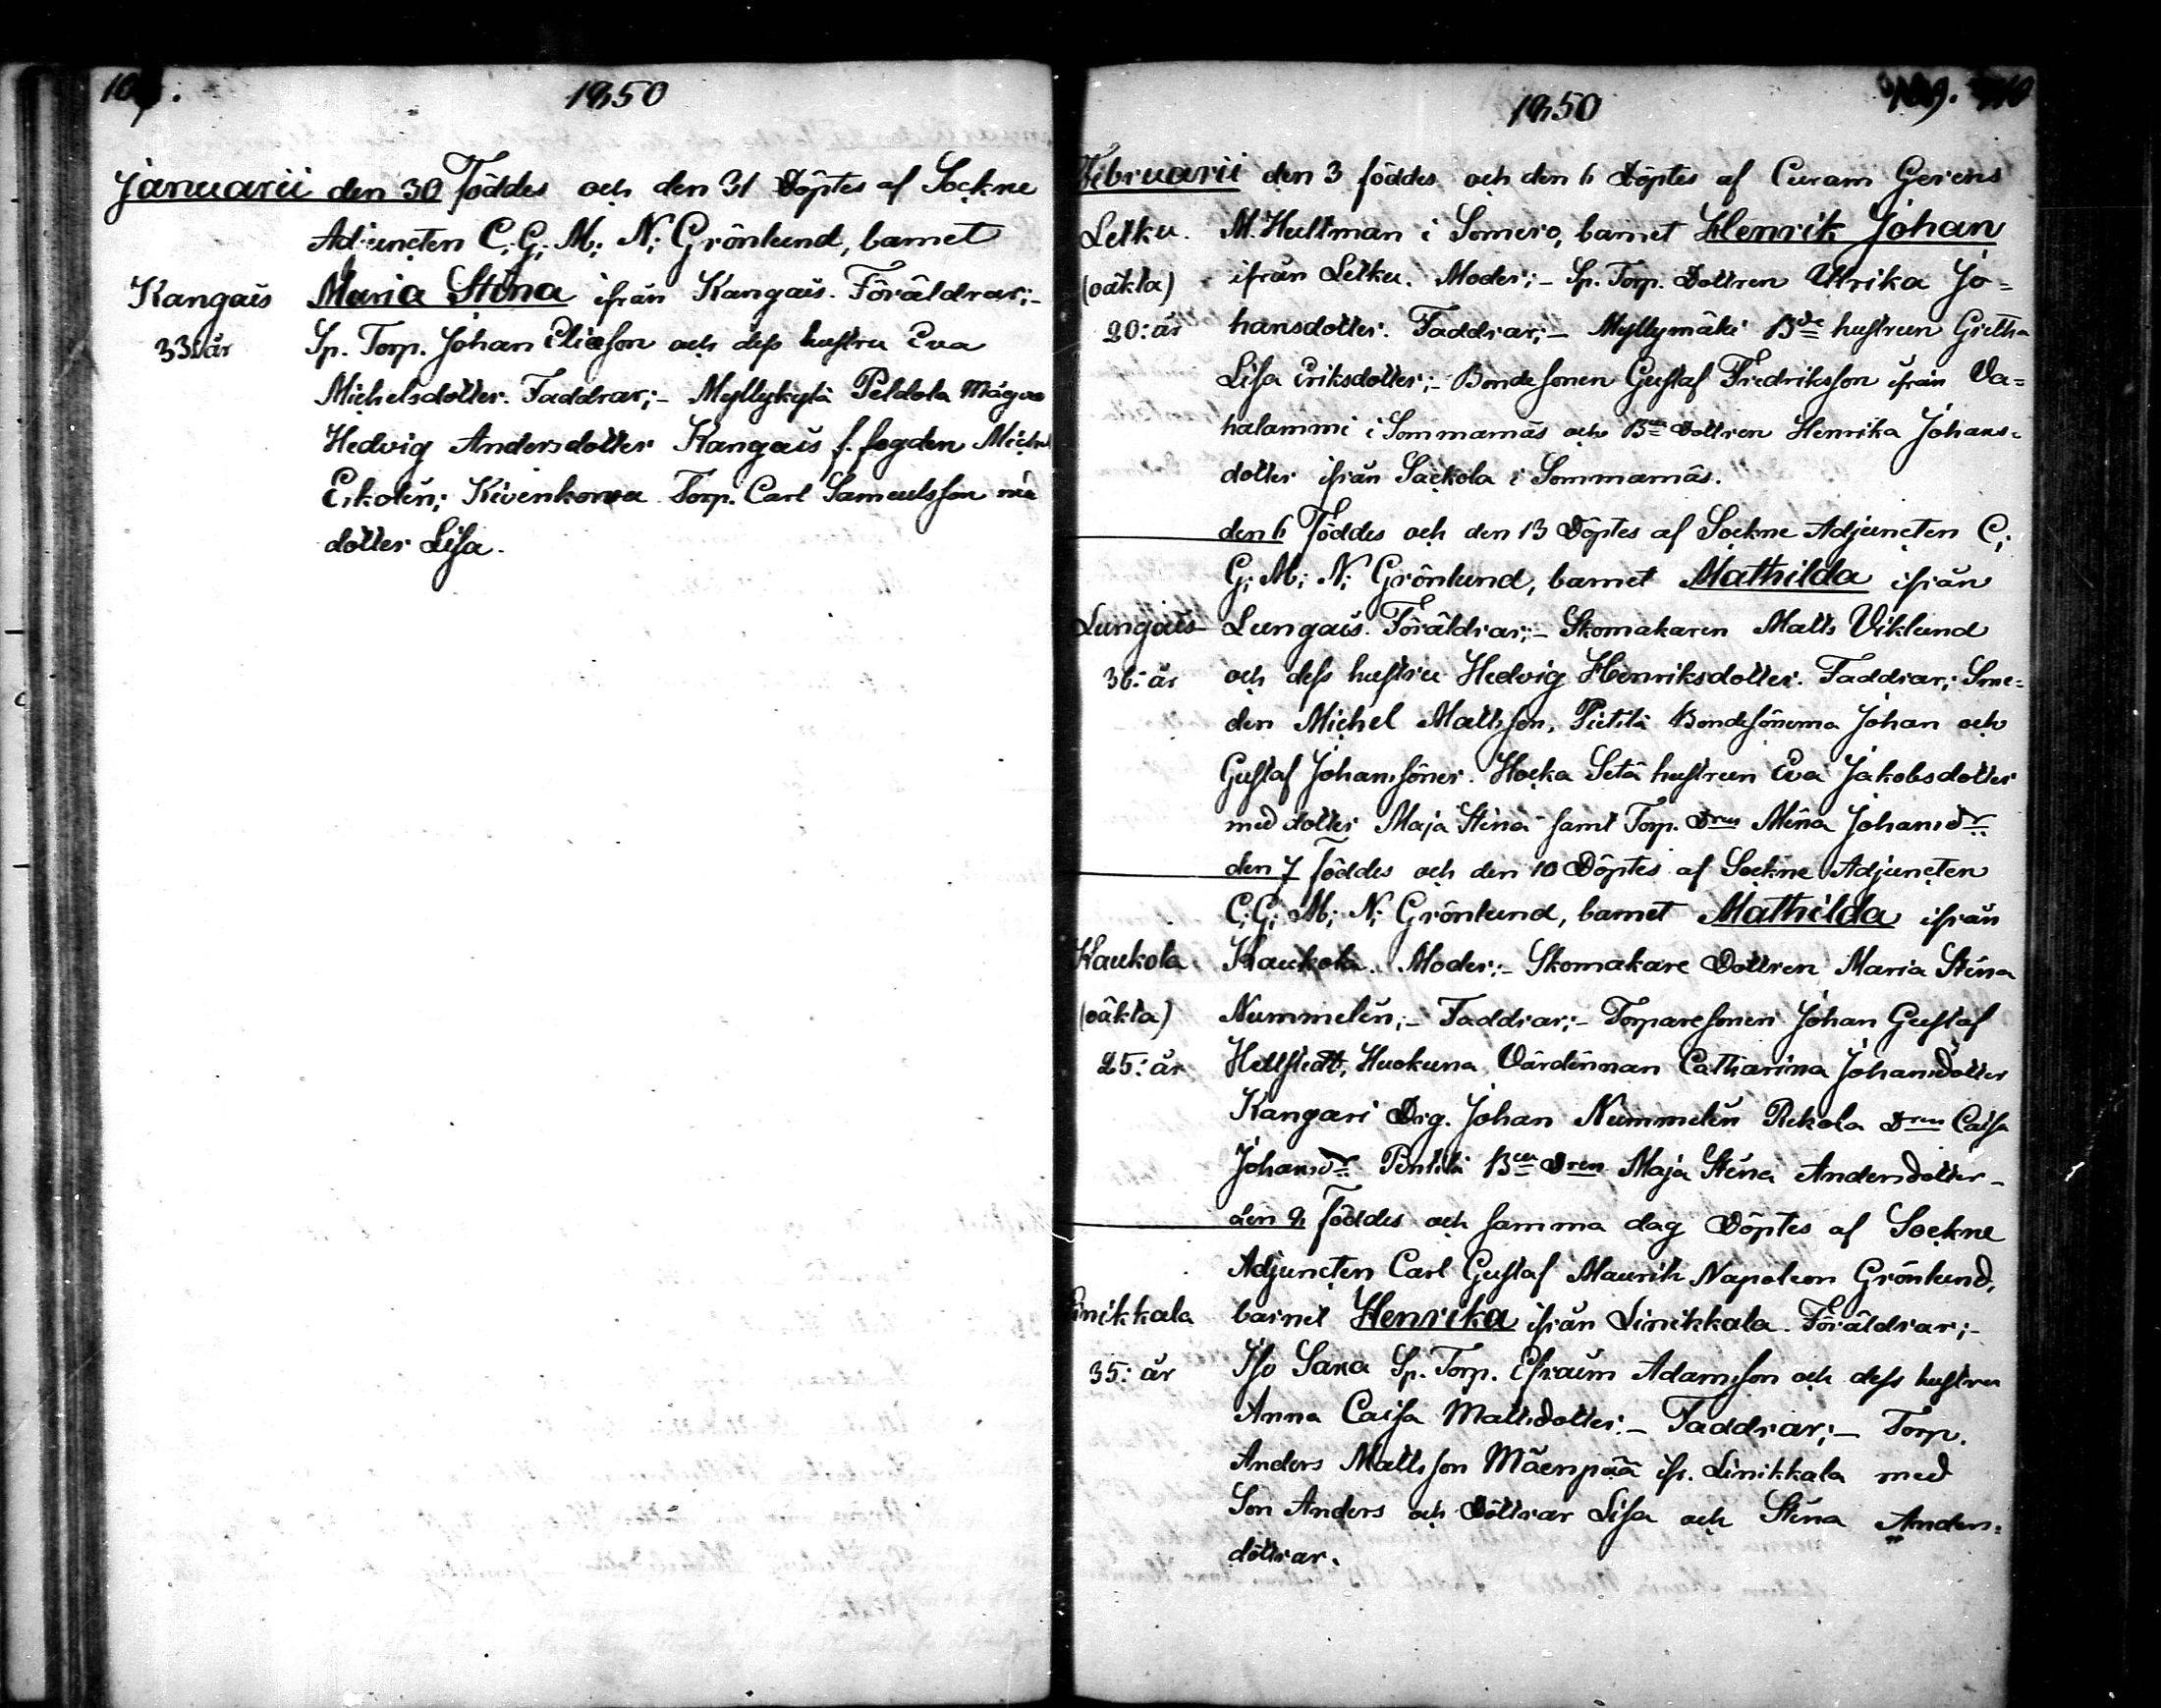 1850
Januarii den 30 Föddes och den 31 Döptes af Sockne
Adjuncten C; G; M; N; Grönlund, barnet
Kangais Maria Stina ifrån Kangais. Föräldrar;-
33: år Sp. Torp. Johan Eliasson och dess hustru Eva
Michelsdotter. Faddrar;- Myllykylä Peldola Mågen
Hedvig Andersdotter Kangais f. fogden Michel
Ekolin; Kivenkorva Torp. Carl Samuelsson med
dotter Lisa.
1850
Februarii den 3 föddes och den 6 Döptes af Curam Gerens
Letku. M. Hultman i Somero, barnet Henrik Johan
(oäkta) ifrån Letku. Moder;- Sp. Torp. Dottren Ulrika Jo=
20: år hansdotter. Faddrar;- Myllymäki Bde hustrun Gretha
Lisa Eriksdotter;- Bondesonen Gustaf Fredriksson ifrån Va=
halammi i Sommarnäs och Bde Dottren Henrika Johans=
dotter ifrån Säckola i Sommarnäs.
den 6 Föddes och den 13 Döptes af Sockne Adjuncten C;
G; M; N; Grönlund, barnet Mathilda ifrån
Lungais Lungais. Föräldrar;- Skomakaren Matts Viklund
36: år och dess hustru Hedvig Henriksdotter. Faddrar; Sme=
den Michel Mattsson, Pietilä Bondesönerna Johan och
Gustaf Johanssöner. Hocka Setä hustrun Eva Jakobsdotter
med dotter Maja Stina samt Torp. Dren Mina Johansdr
den 7 föddes och den 10 Döptes af Sockne Adjuncten
C; G; M; N; Grönlund, barnet Mathilda ifrån
Kaukola Kaukola. Moder;- Skomakare Dottren Maria Stina
(oäkta) Nummelin;- Faddrar;- Torparesonen Johan Gustaf
25: år Hellstedt, Huokuna Värdinnan Catharina Johansdotter
Kangari Drg. Johan Nummelin Rekola Dren Caisa
Johansdr Penttilä Bde Dren Maja Stina Andersdotter-
den 9 föddes och samma dag Döptes af Sockne
Adjuncten Carl Gustaf Maurits Napoleon Grönlund,
Linikkala barnet Henrika ifrån Linikkala. Föräldrar;-
35: år Iso Sana Sp. Torp. Efraim Adamsson och dess hustru
Anna Caisa Mattsdotter.- Faddrar;- Torp.
Anders Mattsson Mäenpää ifr. Linikkala med
Son Anders och Döttrar Lisa och Stina Anders=
döttrar.